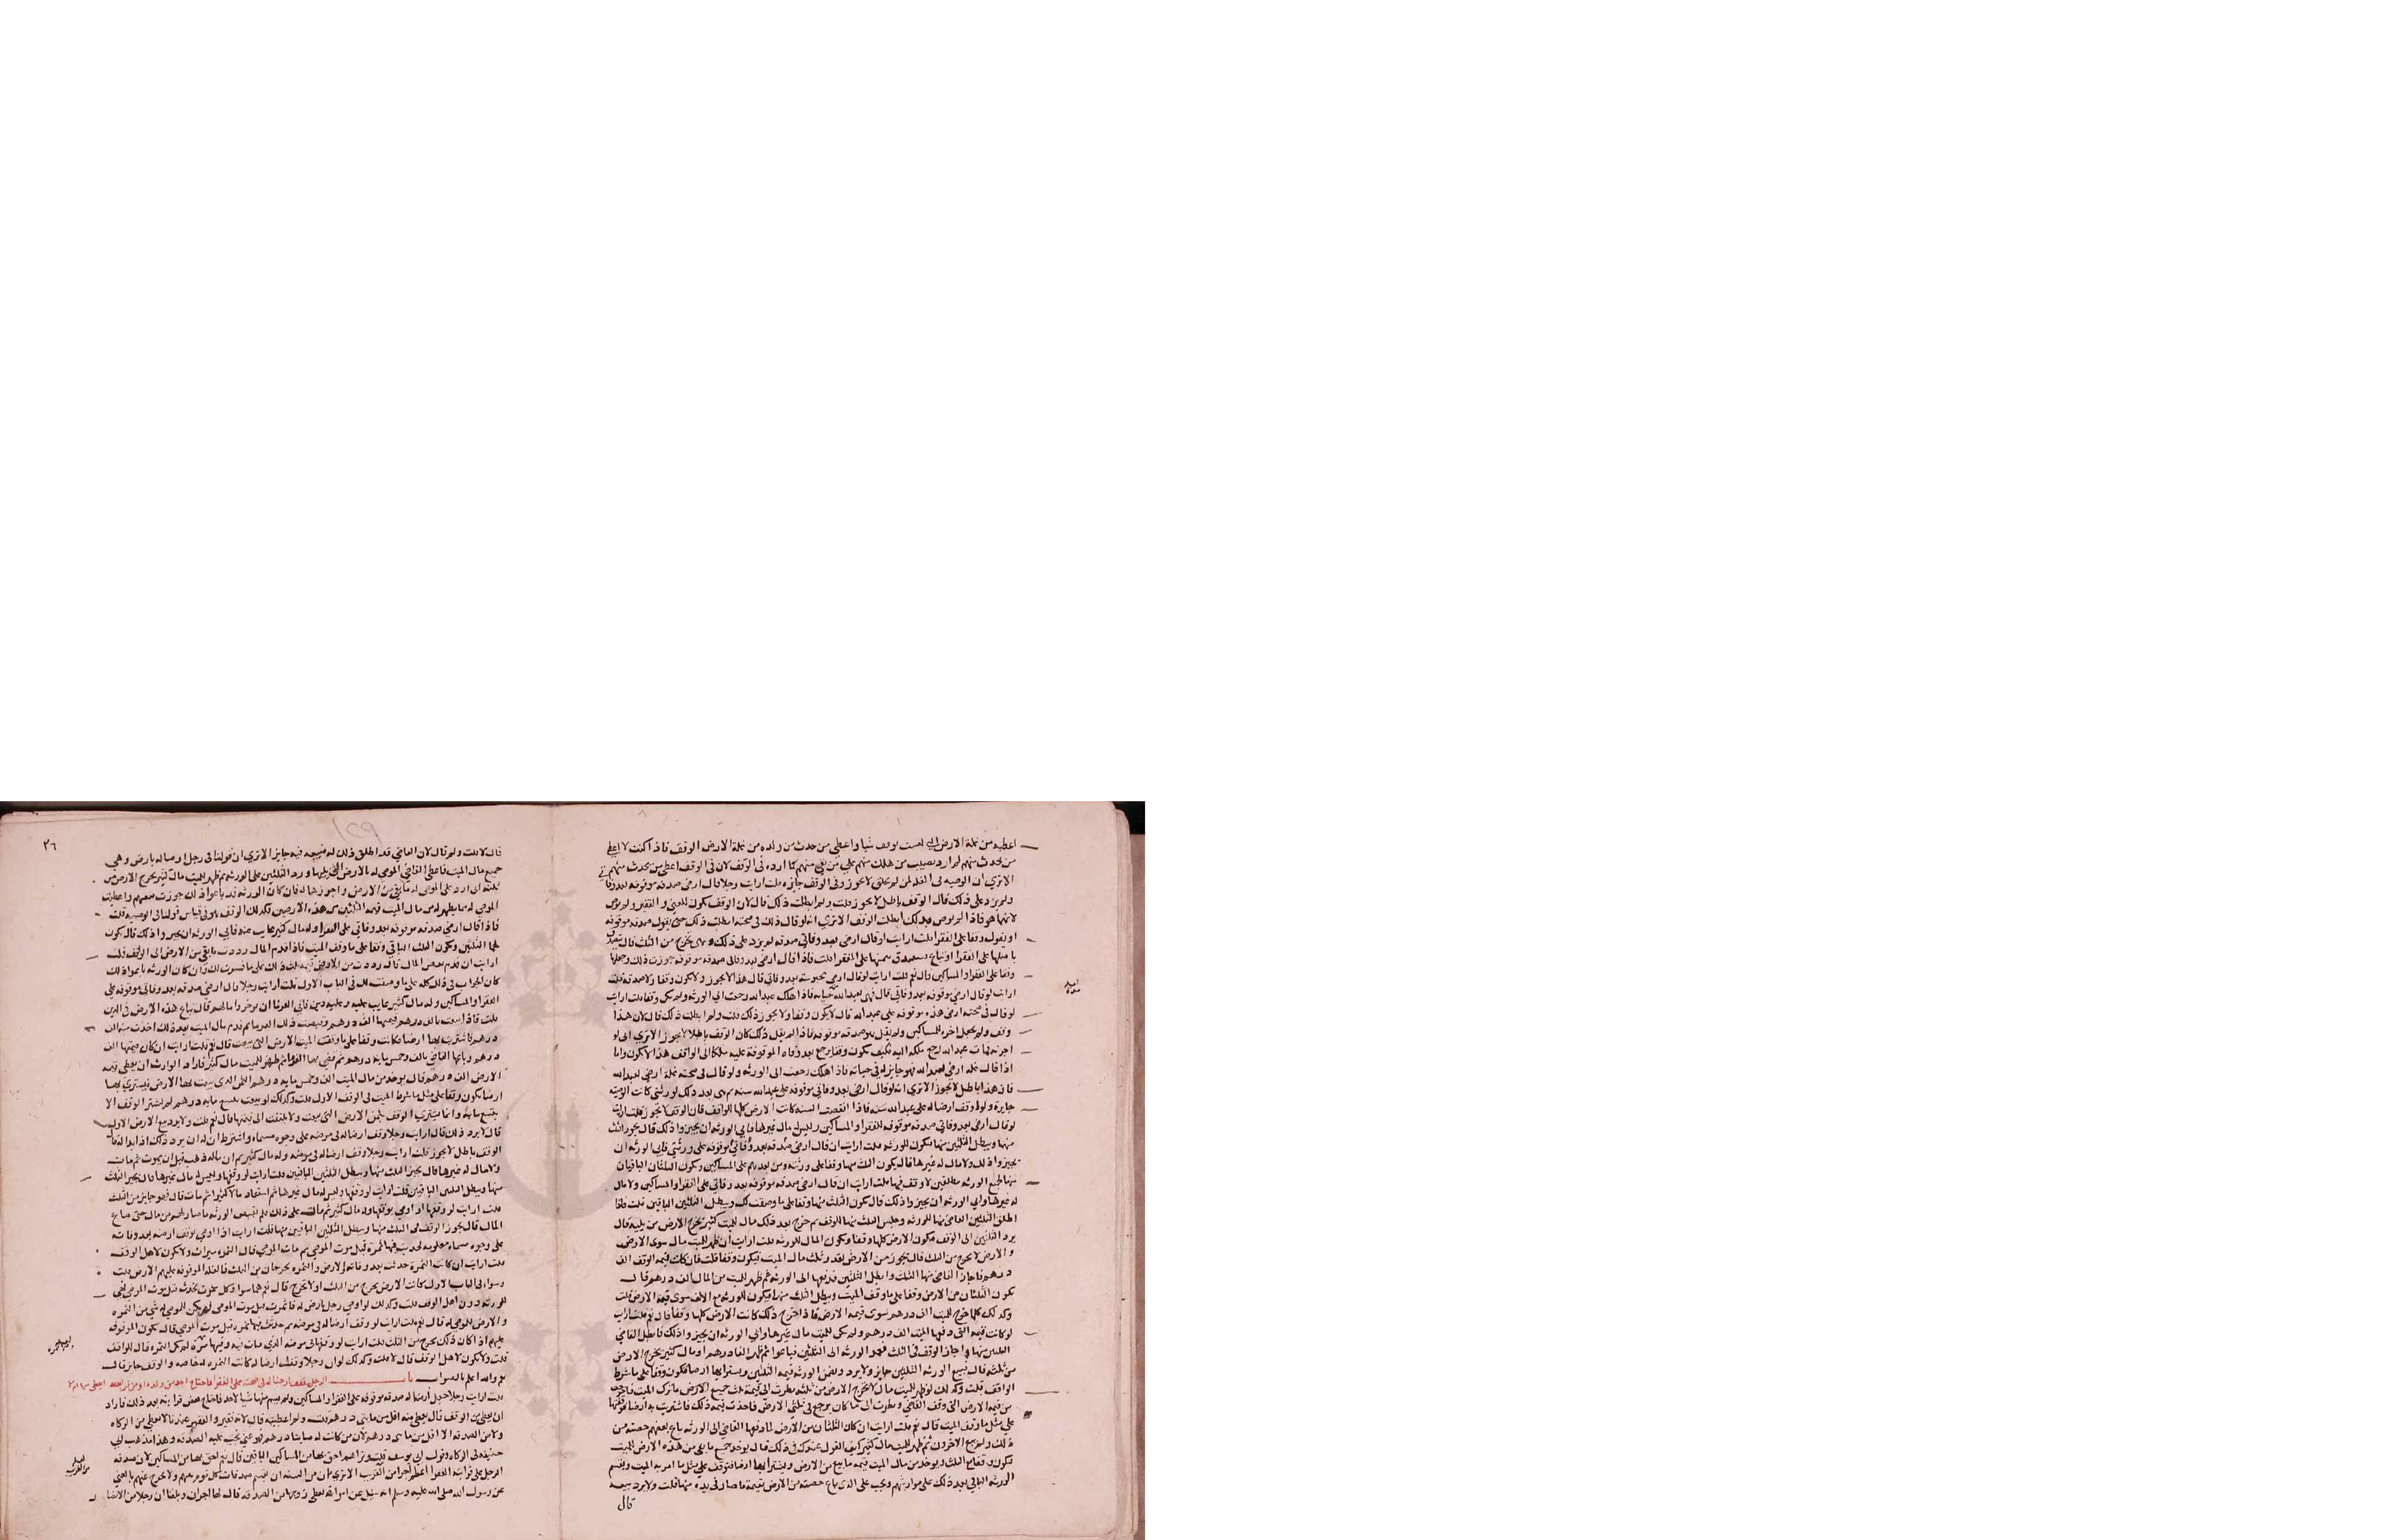 اعطيه من غلة الارض التي ليست بوقف شيا واعطي من حدث من ولده من غلة الارض الوقف فاذا كنت لا اعطي
من يحدث منهم لم ارد نصيب من هلك منهم على من بقي منهم كما ارده في الوقف لان في الوقف اعطي من يحدث منهم
الا ترى ان الوصية في الغلة لمن لم يخلق لا يجوز وفي الوقف جايزه قلت ارايت رجلا قال ارضي صدقه موقوفه بعد وفاتي
ولم يزد على ذلك قال الوقف باطل لا يجوز قلت ولم ابطلت ذلك قال لان الوقف يكون للغني والفقير
الوقف الا ترى انه لو قال ذلك في صحته ابطلت ذلك حتى يقول صدقه موقوفه
او يقول وقفا على الفقرا قلت ارايت لو قال ارضي بعد وفاتي صدقه لم يزد على ذلك وهي تخرج من الثلث قال
على الفقرا قلت فاذا قال ارضي بعد وفاتي صدقه موقوفه جوزت ذلك وجعلتها
وقفا على الفقرا والمساكين قال نعم قلت ارايت لو قال ارضي محبوسه بعد وفاتي قال هذا لا يجوز ولا يكون وقفا ولا صدقه قلت
ارايت لو قال ارضي موقوفه بعد وفاتي قال فهي لعبد الله حياته فاذا هلك عبد الله رجعت الى الورثه ولم يكن وقفا قلت ارايت
لو قال في صحته ارضي هذه موقوفه على عبد الله قال لا يكون وقفا ولا يجوز ذلك قلت ولم ابطلت ذلك قال لان هذا
وقف ولم يجعل اخره للمساكين ولم يقل صدقه موقوفه فاذا لم يقل ذلك كان الوقف باطلا لا يجوز الا ترى اني لو
اجزته فمات عبد الله رجع ملكه اليه فكيف يكون وقفا يرجع بعد وفاة الموقوفة عليه ملكا الى الواقف هذا لا يكون واما
اذا قال غلة ارضي لعبد الله فهو جايز له في حياته فاذا هلك رجعت الى الورثه ولو قال في صحته غلة ارضي لعبد الله
فان هذا باطل لا يجوز الا ترى انه لو قال ارضي بعد وفاتي موقوفه على عبد الله سنه ثم هي بعد ذلك لورثتي كانت الوصية
جايزة ولو وقف ارضا له على عبد الله سنه فاذا انقضت السنه كانت الارض كلها للواقف فان الوقف لا يجوز قلت ارايت
لو قال ارضي بعد وفاتي صدقه موقوفه للفقرا والمساكين وليس له مال غيرها فابى الورثه ان يجيزوا ذلك قال يجوز الثلث
منها ويبطل الثلثين منها فيكون للورثه قلت ارايت ان قال ارضي صدقه بعد وفاتي موقوفه على ورثتي فابى الورثه ان
يجيزوا ذلك ولا مال له غيرها قال يكون الثلث منها وقفا على ورثته ومن بعدهم على المساكين ويكون الثلثان الباقيان
منها لجميع الورثه مطلقين لا وقف فيها قلت ارايت ان قال ارضي صدقه موقوفه بعد وفاتي على الفقرا والمساكين ولا مال
له غيرها وابى الورثه ان يجيزوا ذلك قال يكون الثلث منها وقفا على ما وصفت لك ويبطل الثلثين الباقين قلت فاذا
اطلق الثلثين القاضي منها للورثه وحبس الثلث منها للوقف ثم خرج بعد ذلك مال للميت كثير يخرج الارض من ثلثه قال
يرد الثلثين الى الوقف فيكون الارض كلها وقفا ويكون المال للورثه قلت ارايت ان ظهر للميت مال سوى الارض
والارض لا تخرج من الثلث قال يجوز من الارض بقدر ثلث مال الميت فيكون وقفا قلت فان كانت قيمة الوقف الف
درهم فاجاز القاضي منها الثلث وابطل الثلثين فدفعها الى الورثه ثم ظهر للميت من المال الف درهم قال
يكون الثلثان من الارض وقفا على ما وقف الميت ويبطل الثلث منها ويكون للورثه مع الالف سوى قيمة الارض قلت
وكذلك كلما خرج للميت الف درهم سوى قيمة الارض فاذا خرج ذلك كانت الارض كلها وقفا قال نعم قلت ارايت
لو كانت قيمة التي وقفها الميت الف درهم ولم يكن للميت مال غيرها وابى الورثه ان يجيزوا ذلك فابطل القاضي
الثلثين منها واجاز الوقف في الثلث فعمد الورثه الى الثلثين فباعوا ثم ظهر الفا درهم او مال كثير يخرج الارض
من ثلثه قال بيع الورثه الثلثين جايز ولا يرد ويضمن الورثه قيمة الثلثين ويشترى بها ارضا فيكون وقفا على ما شرط
الواقف قلت وكذلك لو ظهر للميت مال لا يخرج الارض من ثلثه نظرت الى قيمة ثلث جميع الارض
من قيمة الارض التي وقف القاضي ونظرت الى ما كان يرجع في ثلثي الارض فاخذت قيمة ذلك فاشتريت به ارضا
على مثل ما وقف الميت قال نعم قلت ارايت ان كان الثلثان من الارض لما دفعها القاضي الى الورثه باع بعضهم حصته من
ذلك ولم يبع الاخرون ثم ظهر للميت مال كثير كيف القول عندك في ذلك قال يوخذ جميع ما بقي من هذه الارض للميت
فيكون وقفا مع الثلث ويوخذ من مال الميت قيمة ما بيع من الارض ويشترى بها ارضا فتوقف على مثل ما امر به الميت ويقسم
الورثه الباقي بعد ذلك على مواريثهم ويجب على الذي باع حصته من الارض بقيمة ما صار في يده منها قلت ولا يرد بيعه
قال
٢٦
قال لا قلت ولم قال لان القاضي قد اطلق ذلك له فبيعه فيه جايز الا ترى ان قولنا في رجل اوصى له بارض وهي
جميع مال الميت فاعطى القاضي الموصى له بالارض ورد الثلثين على الورثه ثم ظهر للميت مال كثير يخرج الارض من
ثلثه اني ارد على الموصى له ما بقي من الارض واجوزها له فان كان الورثه قد باعوا ذلك جوزت بيعهم واعطيت
الموصى له مما يظهر له من مال الميت قيمة الثلثين من هذه الارض وكذلك الوقف هو في قياس قولنا في الوصيه قلت
فاذا قال ارضي صدقه موقوفه بعد وفاتي على الفقرا وله مال كثير غايب عنه فابى الورثه ان يجيزوا ذلك قال يكون
لهما الثلثين ويكون الثلث الباقي وقفا على ما وقف الميت فاذا قدم المال رددت ما بقي من الارض الى الوقف قلت
ارايت ان قدم بعض المال قال رددت من الارض قيمة ثلث ذلك على ما فسرت لك فان كان الورثه باعوا ذلك
كان الجواب في ذلك كله على ما وصفت لك في الباب الاول قلت ارايت رجلا قال ارضي صدقه بعد وفاتي موقوفه على
الفقرا والمساكين وله مال كثير غايب عليه وعليه دين فابى الغرما ان يوخروا مالهم قال تباع هذه الارض في الدين
قلت فاذا ابيعت بالف درهم
درهم فاشتريت بها ارضا فكانت وقفا على ما وقف الميت الارض التي بيعت قال نعم قلت ارايت ان كان قيمتها الف
درهم وباعها القاضي بالف وخمس مايه درهم ثم قضى بها الغرما ثم ظهر للميت مال كثير فاراد الوارث ان يعطي قيمة
الارض الف درهم قال يوخذ من مال الميت الف وخمس مايه درهم الثمن الذي بيعت بها الارض فيشترى بها
ارضا يكون وقفا على مثل ما شرط الميت في الوقف الاول قلت وكذلك لو بيعت بتسع مايه درهم لم اشتر الوقف الا
بتسع مايه وانما يشترى الوقف بثمن الارض التي بيعت ولا يلتفت الى قيمتها قال نعم قلت ولا يرد بيع الارض الاول
قال لا يرد ذلك قال ارايت رجلا وقف ارضا له في مرضه على وجوه مسماه واشترط ان له ان يرد ذلك اذا بدا له قال
الوقف باطل لا يجوز قلت ارايت رجلا وقف ارضا له في مرضه وله مال كثير ثم ان ماله ذهب قبل ان يموت ثم مات
ولا مال له غيرها قال يجيز الثلث منها ويبطل الثلثين الباقين قلت ارايت لو وقفها وليس له مال غيرها قال يجيز الثلث
منها ويبطل الثلثين الباقين قلت ارايت لو وقفها وليس له مال غيرها ثم استفاد مالا كثيرا ثم مات قال فهو جايز من الثلث
قلت ارايت لو وقفها او اوصى بوقفها وله مال كثير ثم مات على ذلك فلم يقبض الورثه ما صار لهم من مال حتى ضاع
المال قال يجوز الوقف في الثلث منها ويبطل الثلثين الباقين منها قلت ارايت اذا اوصى بوقف ارضه بعد وفاته
على وجوه مسماه معلومه فحدثت فيها ثمرة قبل موت الموصي ثم مات الموصي قال الثمره ميراث ولا يكون لاهل الوقف
قلت ارايت ان كانت الثمرة حدثت بعد وفاته والارض والثمره يخرجان من الثلث قال الغله للموقوفه عليهم الارض قلت
وسوا في الباب الاول كانت الارض تخرج من الثلث او لا تخرج قال نعم هما سوا وكل ثمرة تحدث قبل موت الموصي فهي
للورثه دون اهل الوقف قلت وكذلك لو اوصى رجل بارض له فاثمرت قبل موت الموصي لم يكن للموصى له شي من الثمره
والارض للموصى له قال نعم قلت ارايت لو وقف ارضا له في مرضه ثم حدثت فيها ثمره قبل موت الموصي قال يكون للموقوفه
عليهم اذا كان ذلك يخرج من الثلث قلت ارايت لو وقفها في مرضه الذي مات فيه وفيها ثمرة لمن يكن الثمره قال للواقف
قلت ولا يكون لاهل الوقف قال لا قلت وكذلك لو ان رجلا وقف ارضا له كانت الثمره له خاصه والوقف جايز قال
نعم والله اعلم بالصواب باب الرجل يقف ارضا له في صحته على الفقرا فاحتاج احد من ولده او من قرابته ايعطى منها ام لا
قلت ارايت رجلا جعل ارضا له صدقه موقوفه على الفقرا والمساكين ولم يسم منها شيا لاحد فاحتاج بعض قرابته بعد ذلك فاراد
ان يعطى من الوقف قال يعطى منه اقل من مايتي درهم قلت ولم اعطيته قال لانه فقير والفقير عندنا لا يعطى من الزكاه
ولا من الصدقه الا اقل من مايتي درهم لان من كانت له مايتا درهم فهو غني يجب عليه الصدقه وهذا مذهب ابي
حنيفه في الزكاه وقول ابي يوسف قلت وتراهم احق بها من المساكين الباقين قال نعم احق بها من المساكين لان صدقه
الرجل على قرابته الفقرا اعظم اجرا من القرب الا ترى ان من السنه ان يقسم صدقات كل قوم بينهم ولا يخرج عنهم بالغنى
عن رسول الله صلى الله عليه وسلم انه سيل عن امراة تعطي زوجها من الصدقه قال لها اجران وبلغنا ان رجلا من الانصار